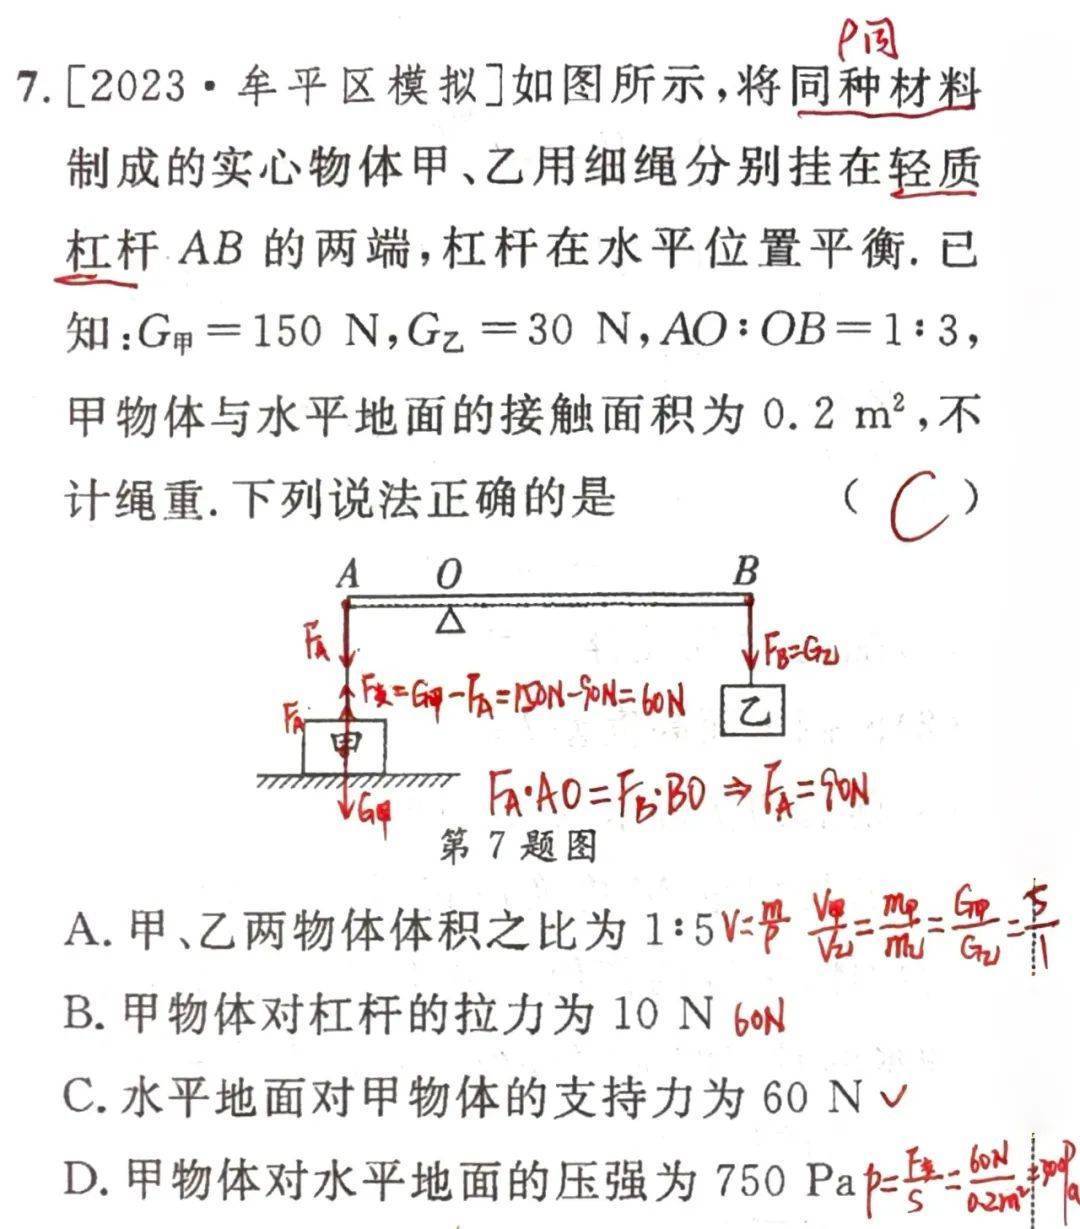 ρ同
7. [2023·牟平区模拟]如图所示,将同种材料
制成的实心物体甲、乙用细绳分别挂在轻质
杠杆 AB 的两端,杠杆在水平位置平衡. 已
知:G甲=150 N,G乙=30 N,AO∶OB=1∶3,
甲物体与水平地面的接触面积为 0.2 m²,不
计绳重. 下列说法正确的是 ( C )
A O B
FA FB=G乙
F支=G甲-FA=150N-90N=60N
FA 甲 乙
FA·AO=FB·BO ⇒ FA=90N
G甲
第 7 题图
A. 甲、乙两物体体积之比为 1∶5 V=m/ρ V甲/V乙=m甲/m乙=G甲/G乙=5/1
B. 甲物体对杠杆的拉力为 10 N 60N
C. 水平地面对甲物体的支持力为 60 N ✓
D. 甲物体对水平地面的压强为 750 Pa p=F支/S=60N/0.2m²=300Pa